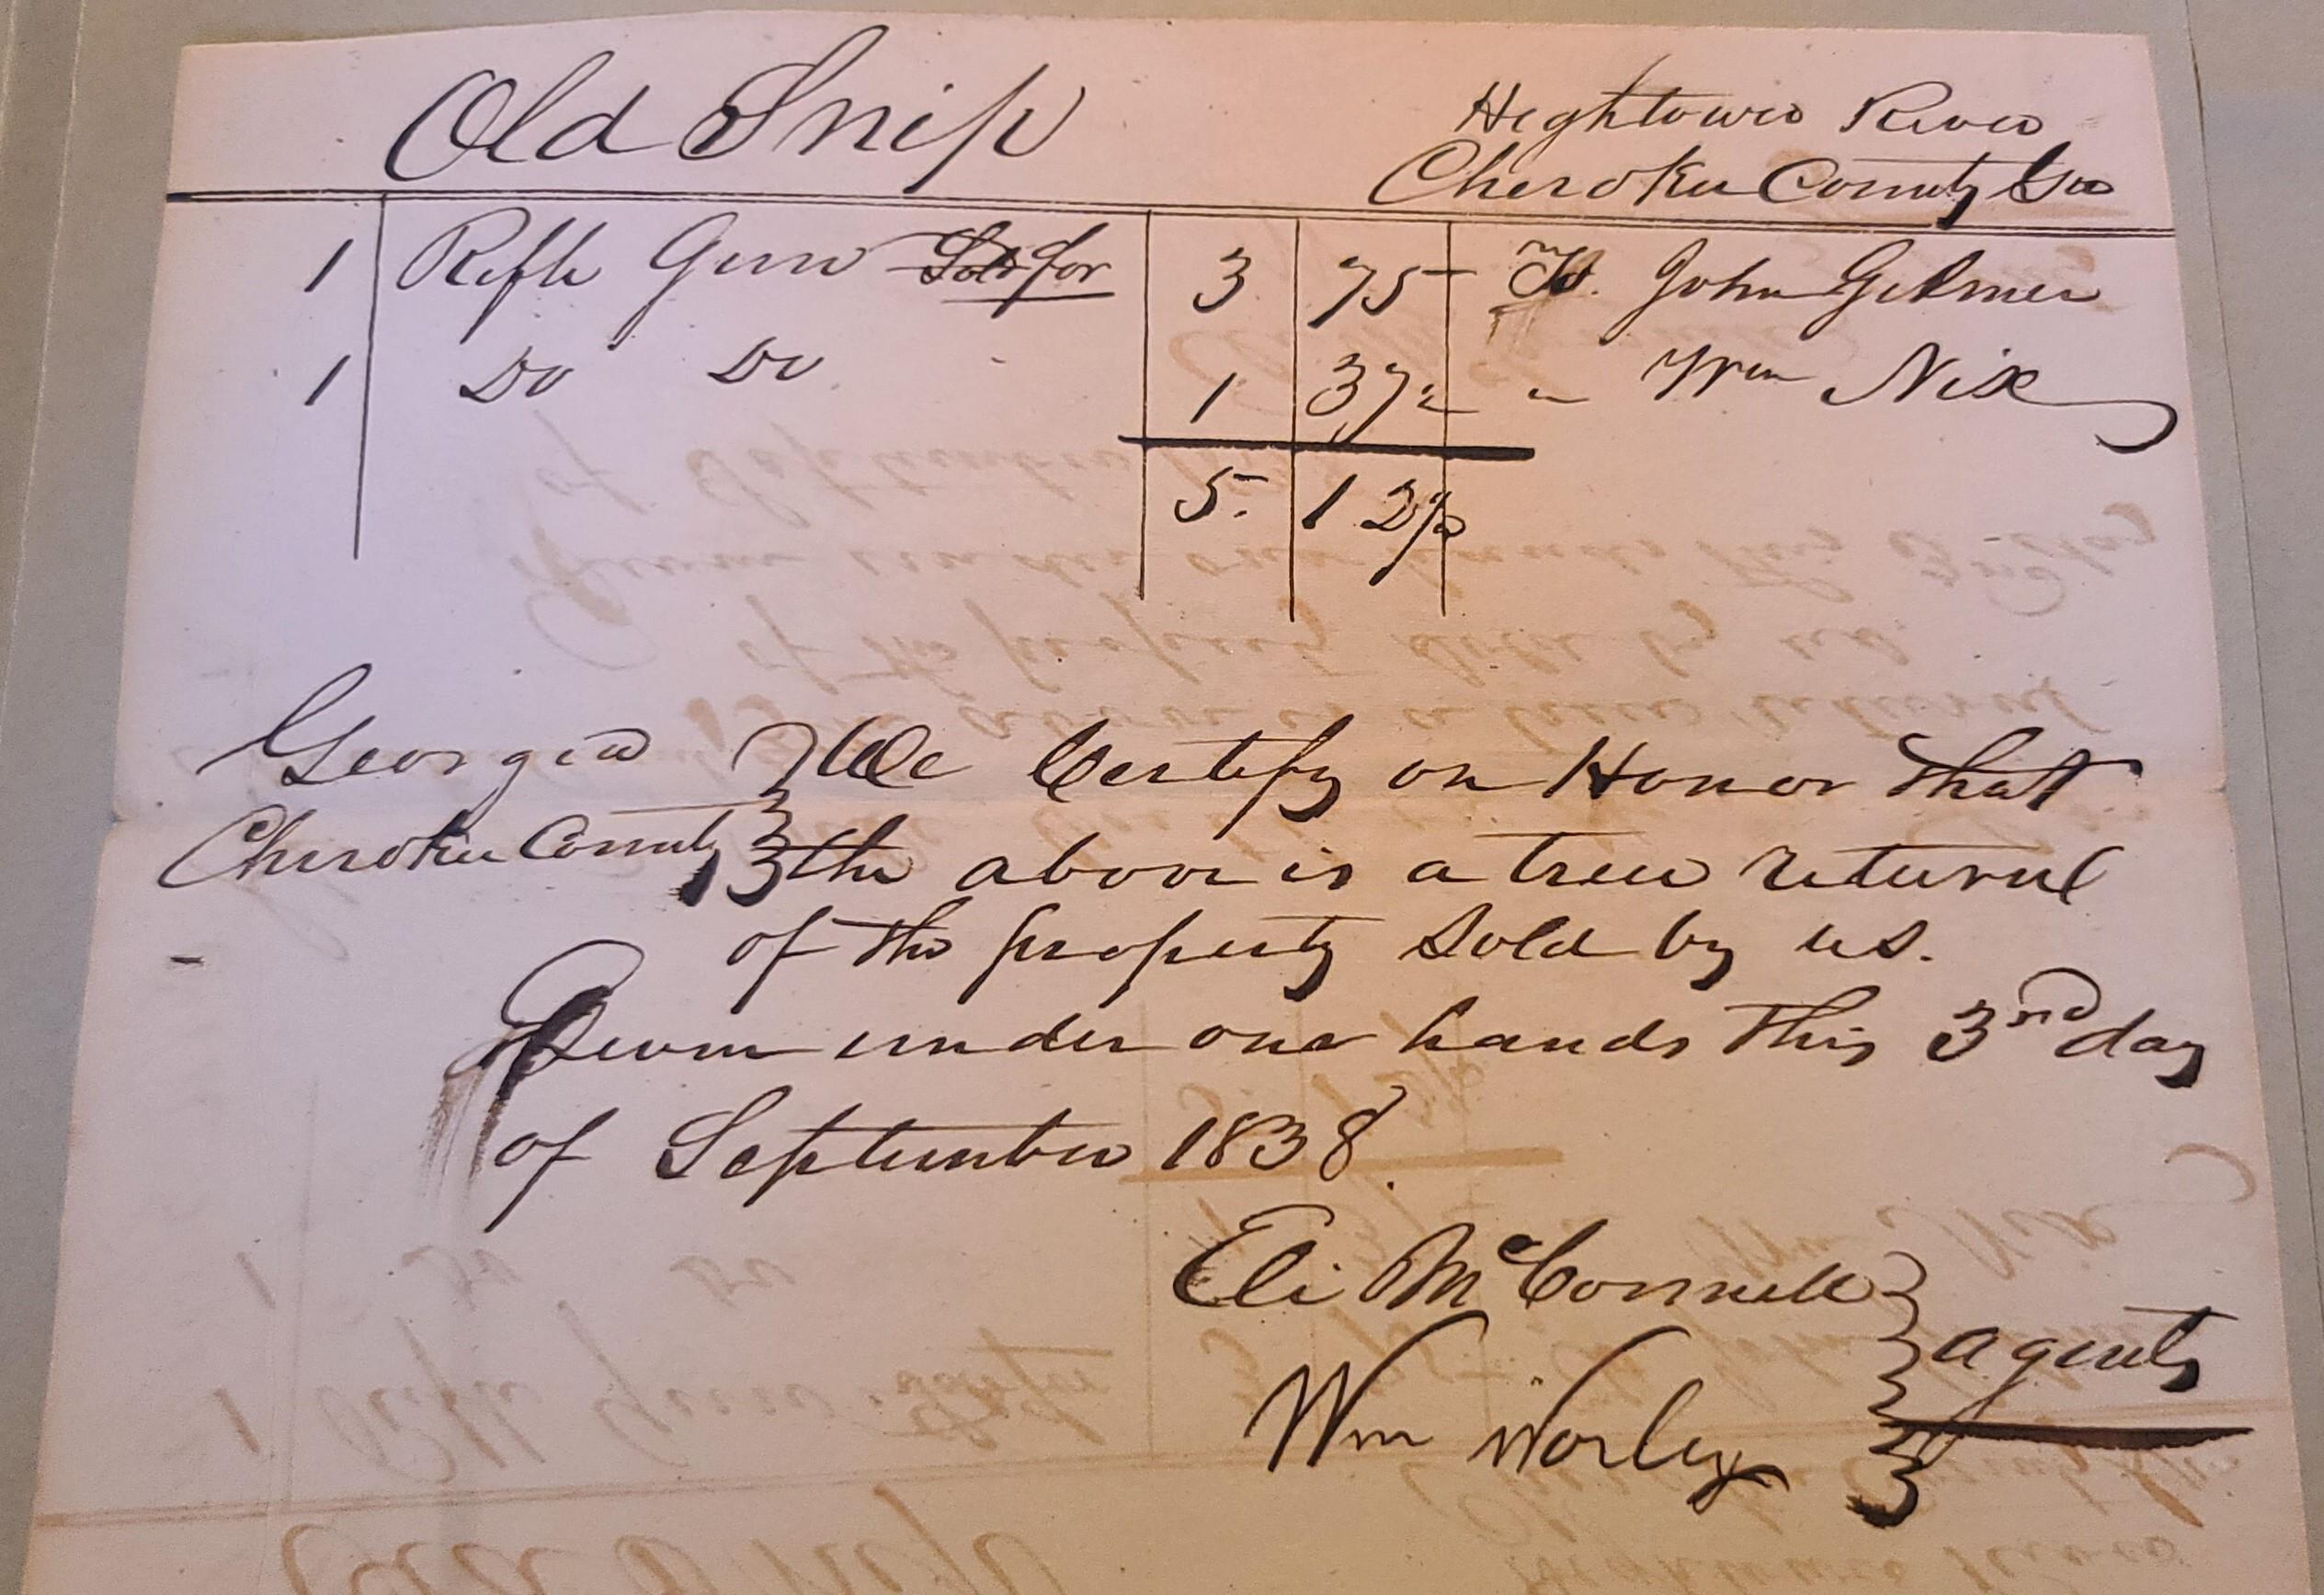 Old Snip
Hightower River
Cherokee County Geo
1 Rifle Gun Sold for 3 75 To. John Gilmer
1 Do Do 1 37½ " Wm Nix
5. 12½
Georgia } We Certify on Honor that
Cherokee County } the above is a true return
of the property Sold by us.
Given under our hands this 3rd day
of September 1838.
Eli McConnell }
agents
Wm Worley }